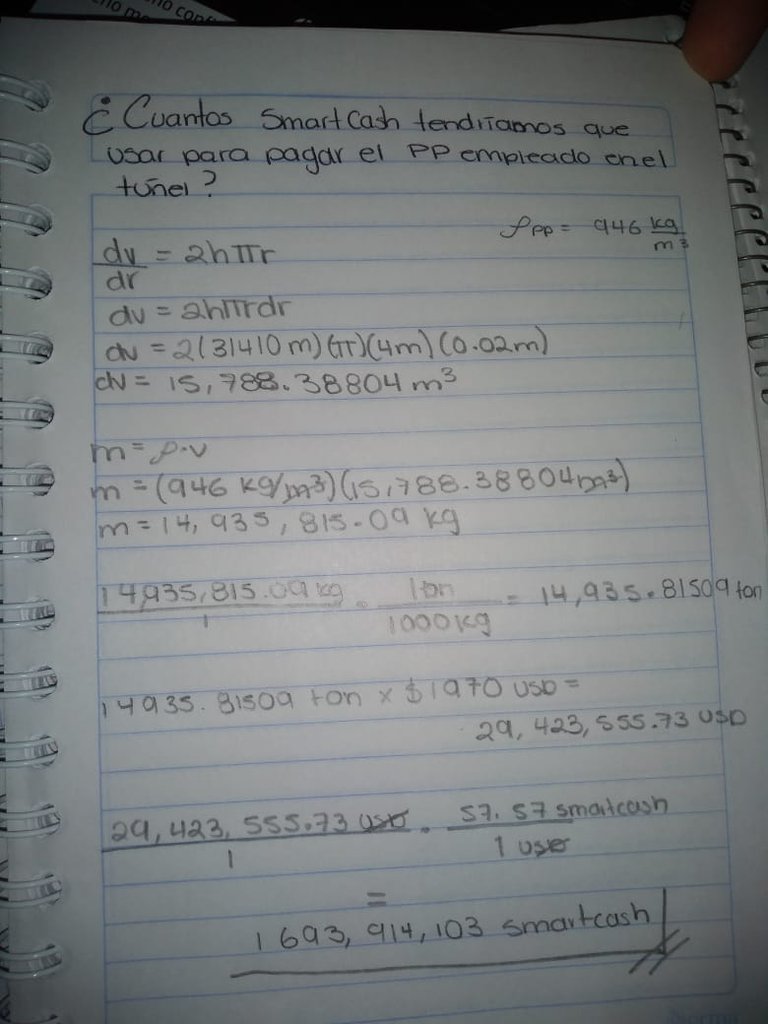 ¿Cuantos SmartCash tendríamos que
usar para pagar el PP empleado en el
túnel?
ρPP = 946 kg/m³
dv/dr = 2hπr
dv = 2hπrdr
dv = 2(31410 m)(π)(4m)(0.02m)
dv = 15,788.38804 m³
m = ρ·v
m = (946 kg/m³)(15,788.38804 m³)
m = 14,935,815.09 kg
14,935,815.09 kg/1 · 1 ton/1000 kg = 14,935.81509 ton
14935.81509 ton x $1970 USD =
29,423,555.73 USD
29,423,555.73 USD/1 · 57.57 smartcash/1 USD
=
1 693,914,103 smartcash